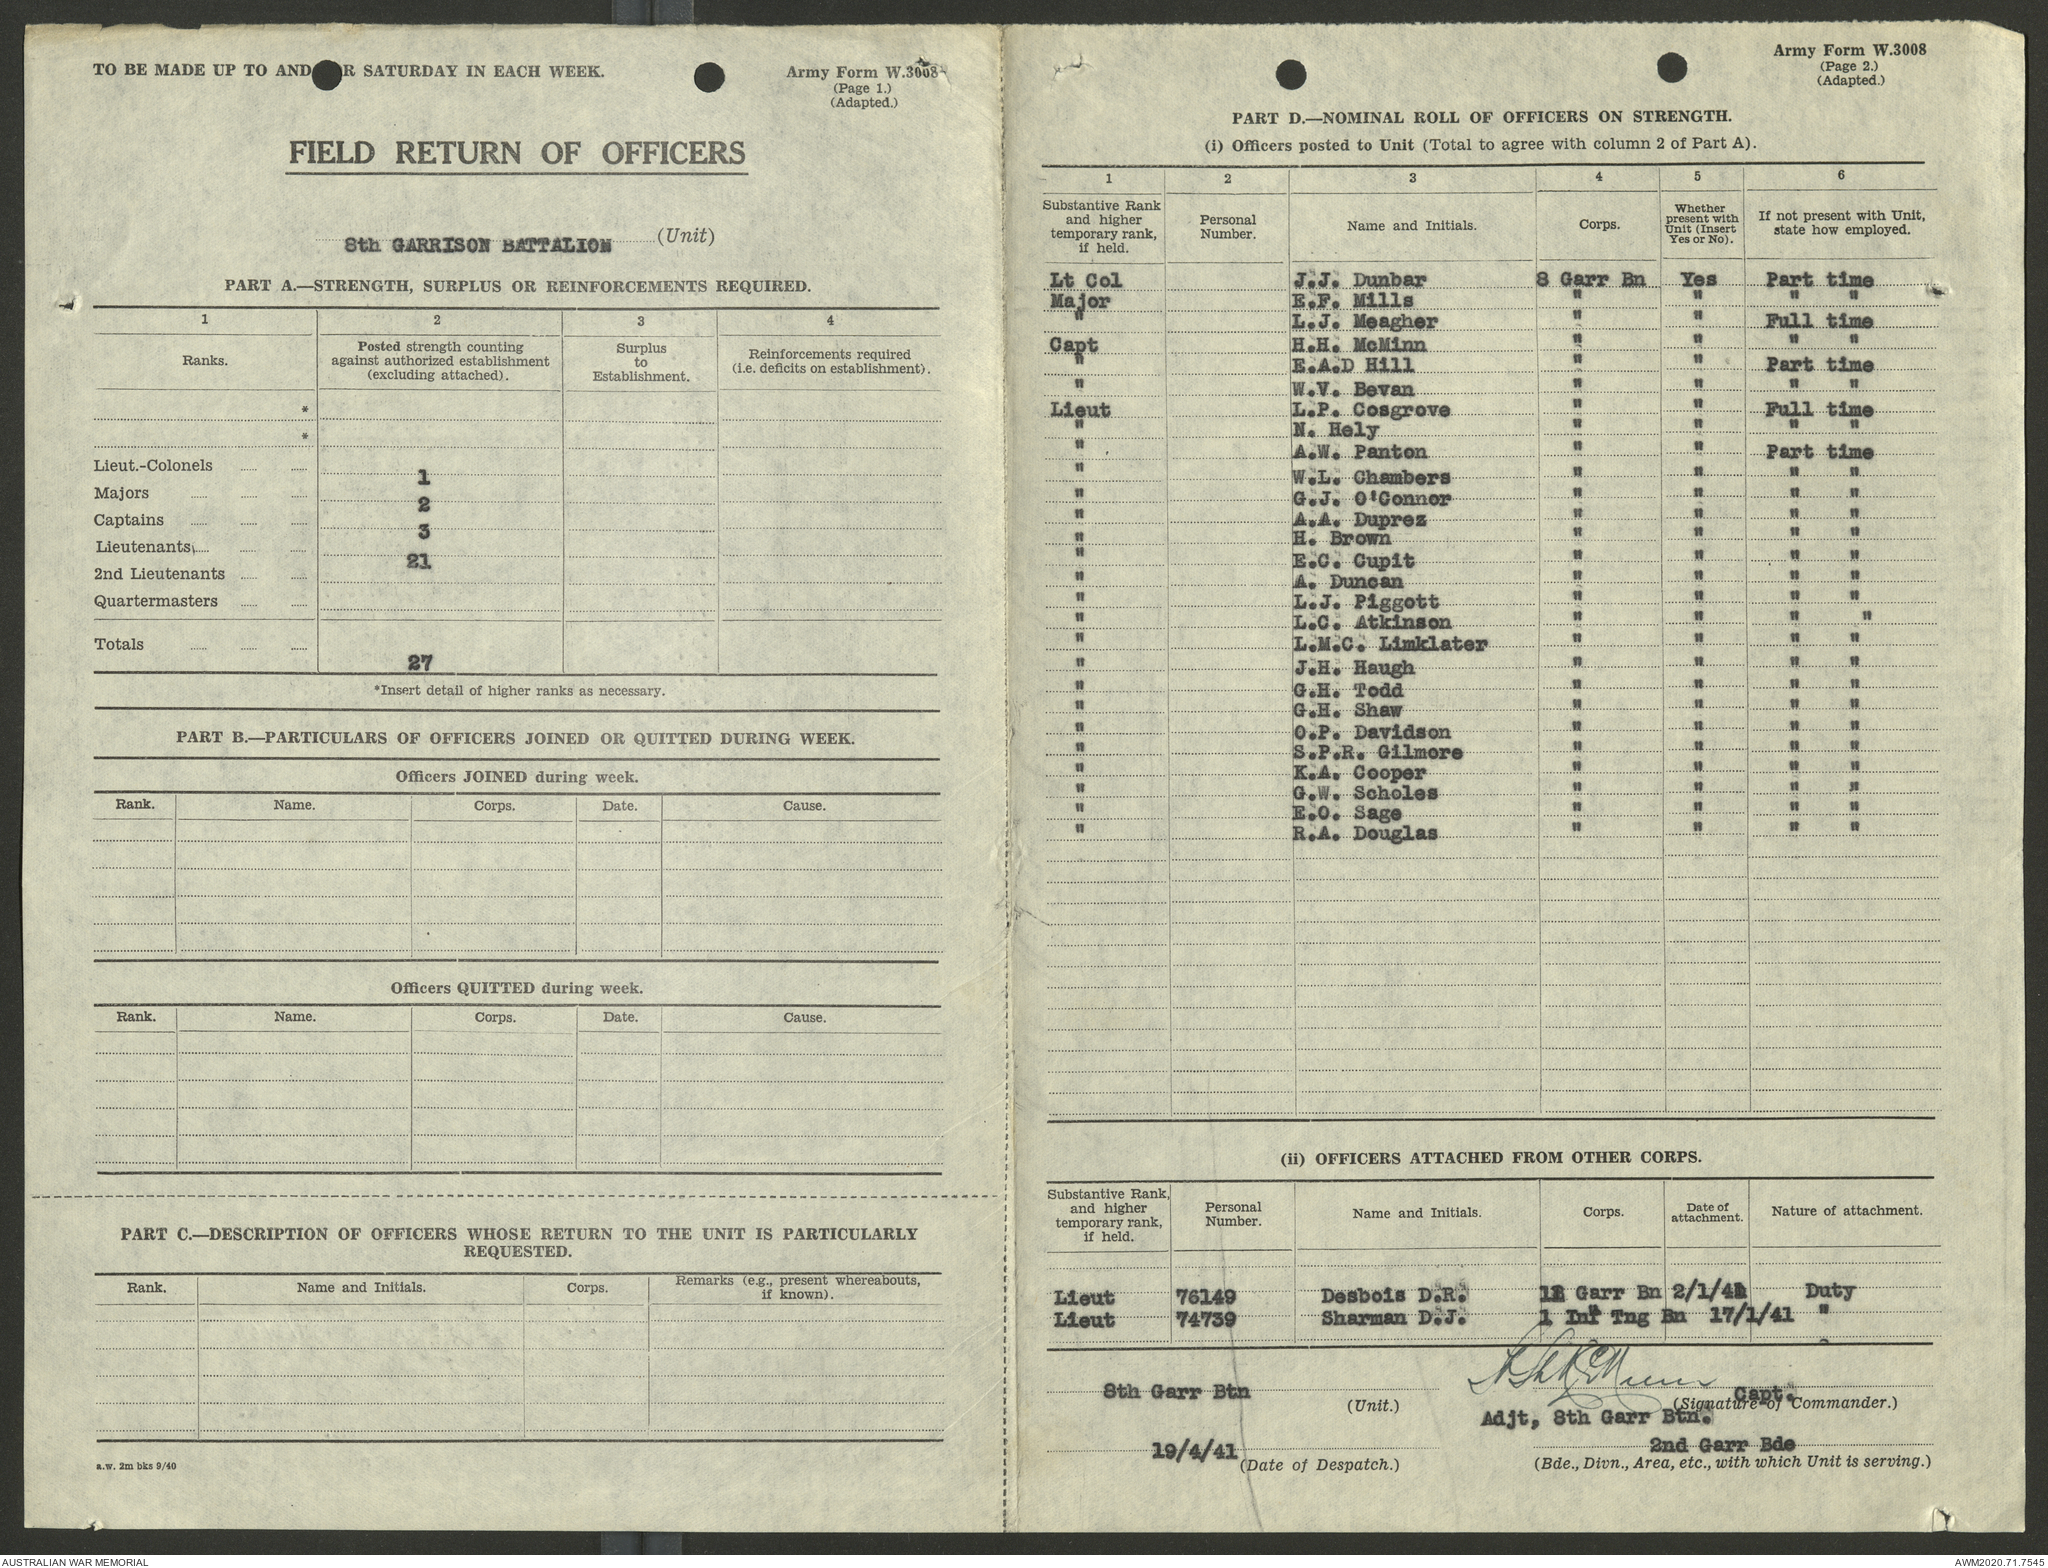 TO BE MADE UP TO AND R SATURDAY IN EACH WEEK.
Army Form W.3008
(Page 1.)
(Adapted.)
FIELD RETURN OF OFFICERS
8th GARRISON BATTALION (Unit)
PART A.—STRENGTH, SURPLUS OR REINFORCEMENTS REQUIRED.
1 2 3 4
Ranks. Posted strength counting against authorized establishment (excluding attached). Surplus to Establishment. Reinforcements required (i.e. deficits on establishment).
*
*
Lieut.-Colonels 1
Majors 2
Captains 3
Lieutenants 21
2nd Lieutenants
Quartermasters
Totals 27
*Insert detail of higher ranks as necessary.
PART B.—PARTICULARS OF OFFICERS JOINED OR QUITTED DURING WEEK.
Officers JOINED during week.
Rank. Name. Corps. Date. Cause.
Officers QUITTED during week.
Rank. Name. Corps. Date. Cause.
PART C.—DESCRIPTION OF OFFICERS WHOSE RETURN TO THE UNIT IS PARTICULARLY
REQUESTED.
Rank. Name and Initials. Corps. Remarks (e.g., present whereabouts, if known).
a.w. 2m bks 9/40
Army Form W.3008
(Page 2.)
(Adapted.)
PART D.—NOMINAL ROLL OF OFFICERS ON STRENGTH.
(i) Officers posted to Unit (Total to agree with column 2 of Part A).
1 2 3 4 5 6
Substantive Rank and higher temporary rank, if held. Personal Number. Name and Initials. Corps. Whether present with Unit (Insert Yes or No). If not present with Unit, state how employed.
Lt Col J.J. Dunbar 8 Garr Bn Yes Part time
Major E.F. Mills " " " "
" L.J. Meagher " " Full time
Capt H.H. McMinn " " " "
" E.A.D Hill " " Part time
" W.V. Bevan " " " "
Lieut L.P. Cosgrove " " Full time
" N. Hely " " " "
" A.W. Panton " " Part time
" W.L. Chambers " " " "
" G.J. O'Connor " " " "
" A.A. Duprez " " " "
" H. Brown " " " "
" E.C. Cupit " " " "
" A. Duncan " " " "
" L.J. Piggott " " " "
" L.C. Atkinson " " " "
" L.M.C. Limklater " " " "
" J.H. Haugh " " " "
" G.H. Todd " " " "
" G.H. Shaw " " " "
" O.P. Davidson " " " "
" S.P.R. Gilmore " " " "
" K.A. Cooper " " " "
" G.W. Scholes " " " "
" E.O. Sage " " " "
" R.A. Douglas " " " "
(ii) OFFICERS ATTACHED FROM OTHER CORPS.
Substantive Rank, and higher temporary rank, if held. Personal Number. Name and Initials. Corps. Date of attachment. Nature of attachment.
Lieut 76149 Desbois D.R. Garr Bn 2/1/41 Duty
Lieut 74739 Sharman D.J. 1 Inf Tng Bn 17/1/41 "
8th Garr Btn (Unit.)
H H McMinn Capt.
(Signature of Commander.)
Adjt, 8th Garr Btn.
19/4/41 (Date of Despatch.)
2nd Garr Bde
(Bde., Divn., Area, etc., with which Unit is serving.)
AUSTRALIAN WAR MEMORIAL
AWM2020.71.7545